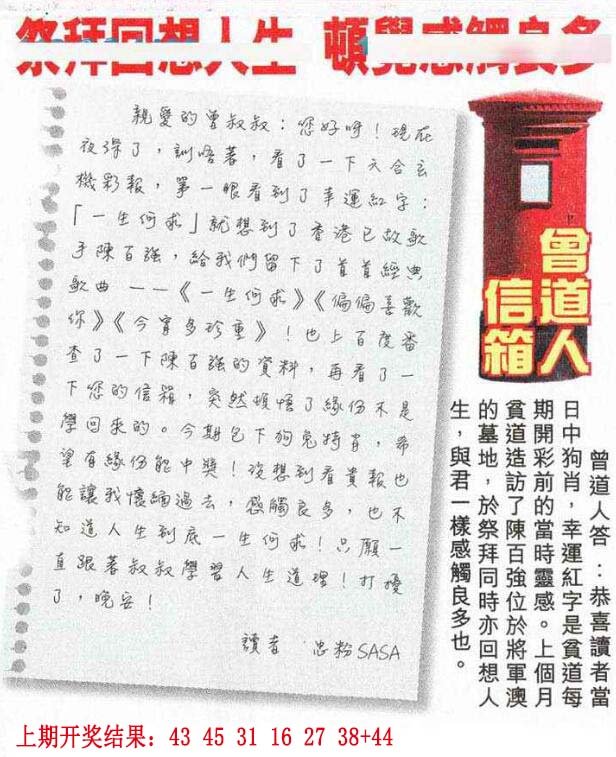 祭拜回想人生 頓覺感觸良多
親愛的曾叔叔：您好呀！現在
夜深了，訓唔著，看了一下六合玄
機彩報，第一眼看到了幸運紅字：
「一生何求」就想到了香港已故歌
手陳百強，給我們留下了首首經典
歌曲——《一生何求》《偏偏喜歡
你》《今宵多珍重》！也上百度番
查了一下陳百強的資料，再看了一
下您的信箱，突然頓悟了緣份不是
學回來的。今期包下狗兔特肖，希
望有緣份能中獎！沒想到看貴報也
能讓我懷緬過去，感觸良多，也不
知道人生到底一生何求！只願一
直跟著叔叔學習人生道理！打擾
了，晚安！
讀者 忠粉SASA
曾道人
信箱
曾道人答：恭喜讀者當
日中狗肖，幸運紅字是貧道每
期開彩前的當時靈感。上個月
貧道造訪了陳百強位於將軍澳
的墓地，於祭拜同時亦回想人
生，與君一樣感觸良多也。
上期开奖结果：43 45 31 16 27 38+44